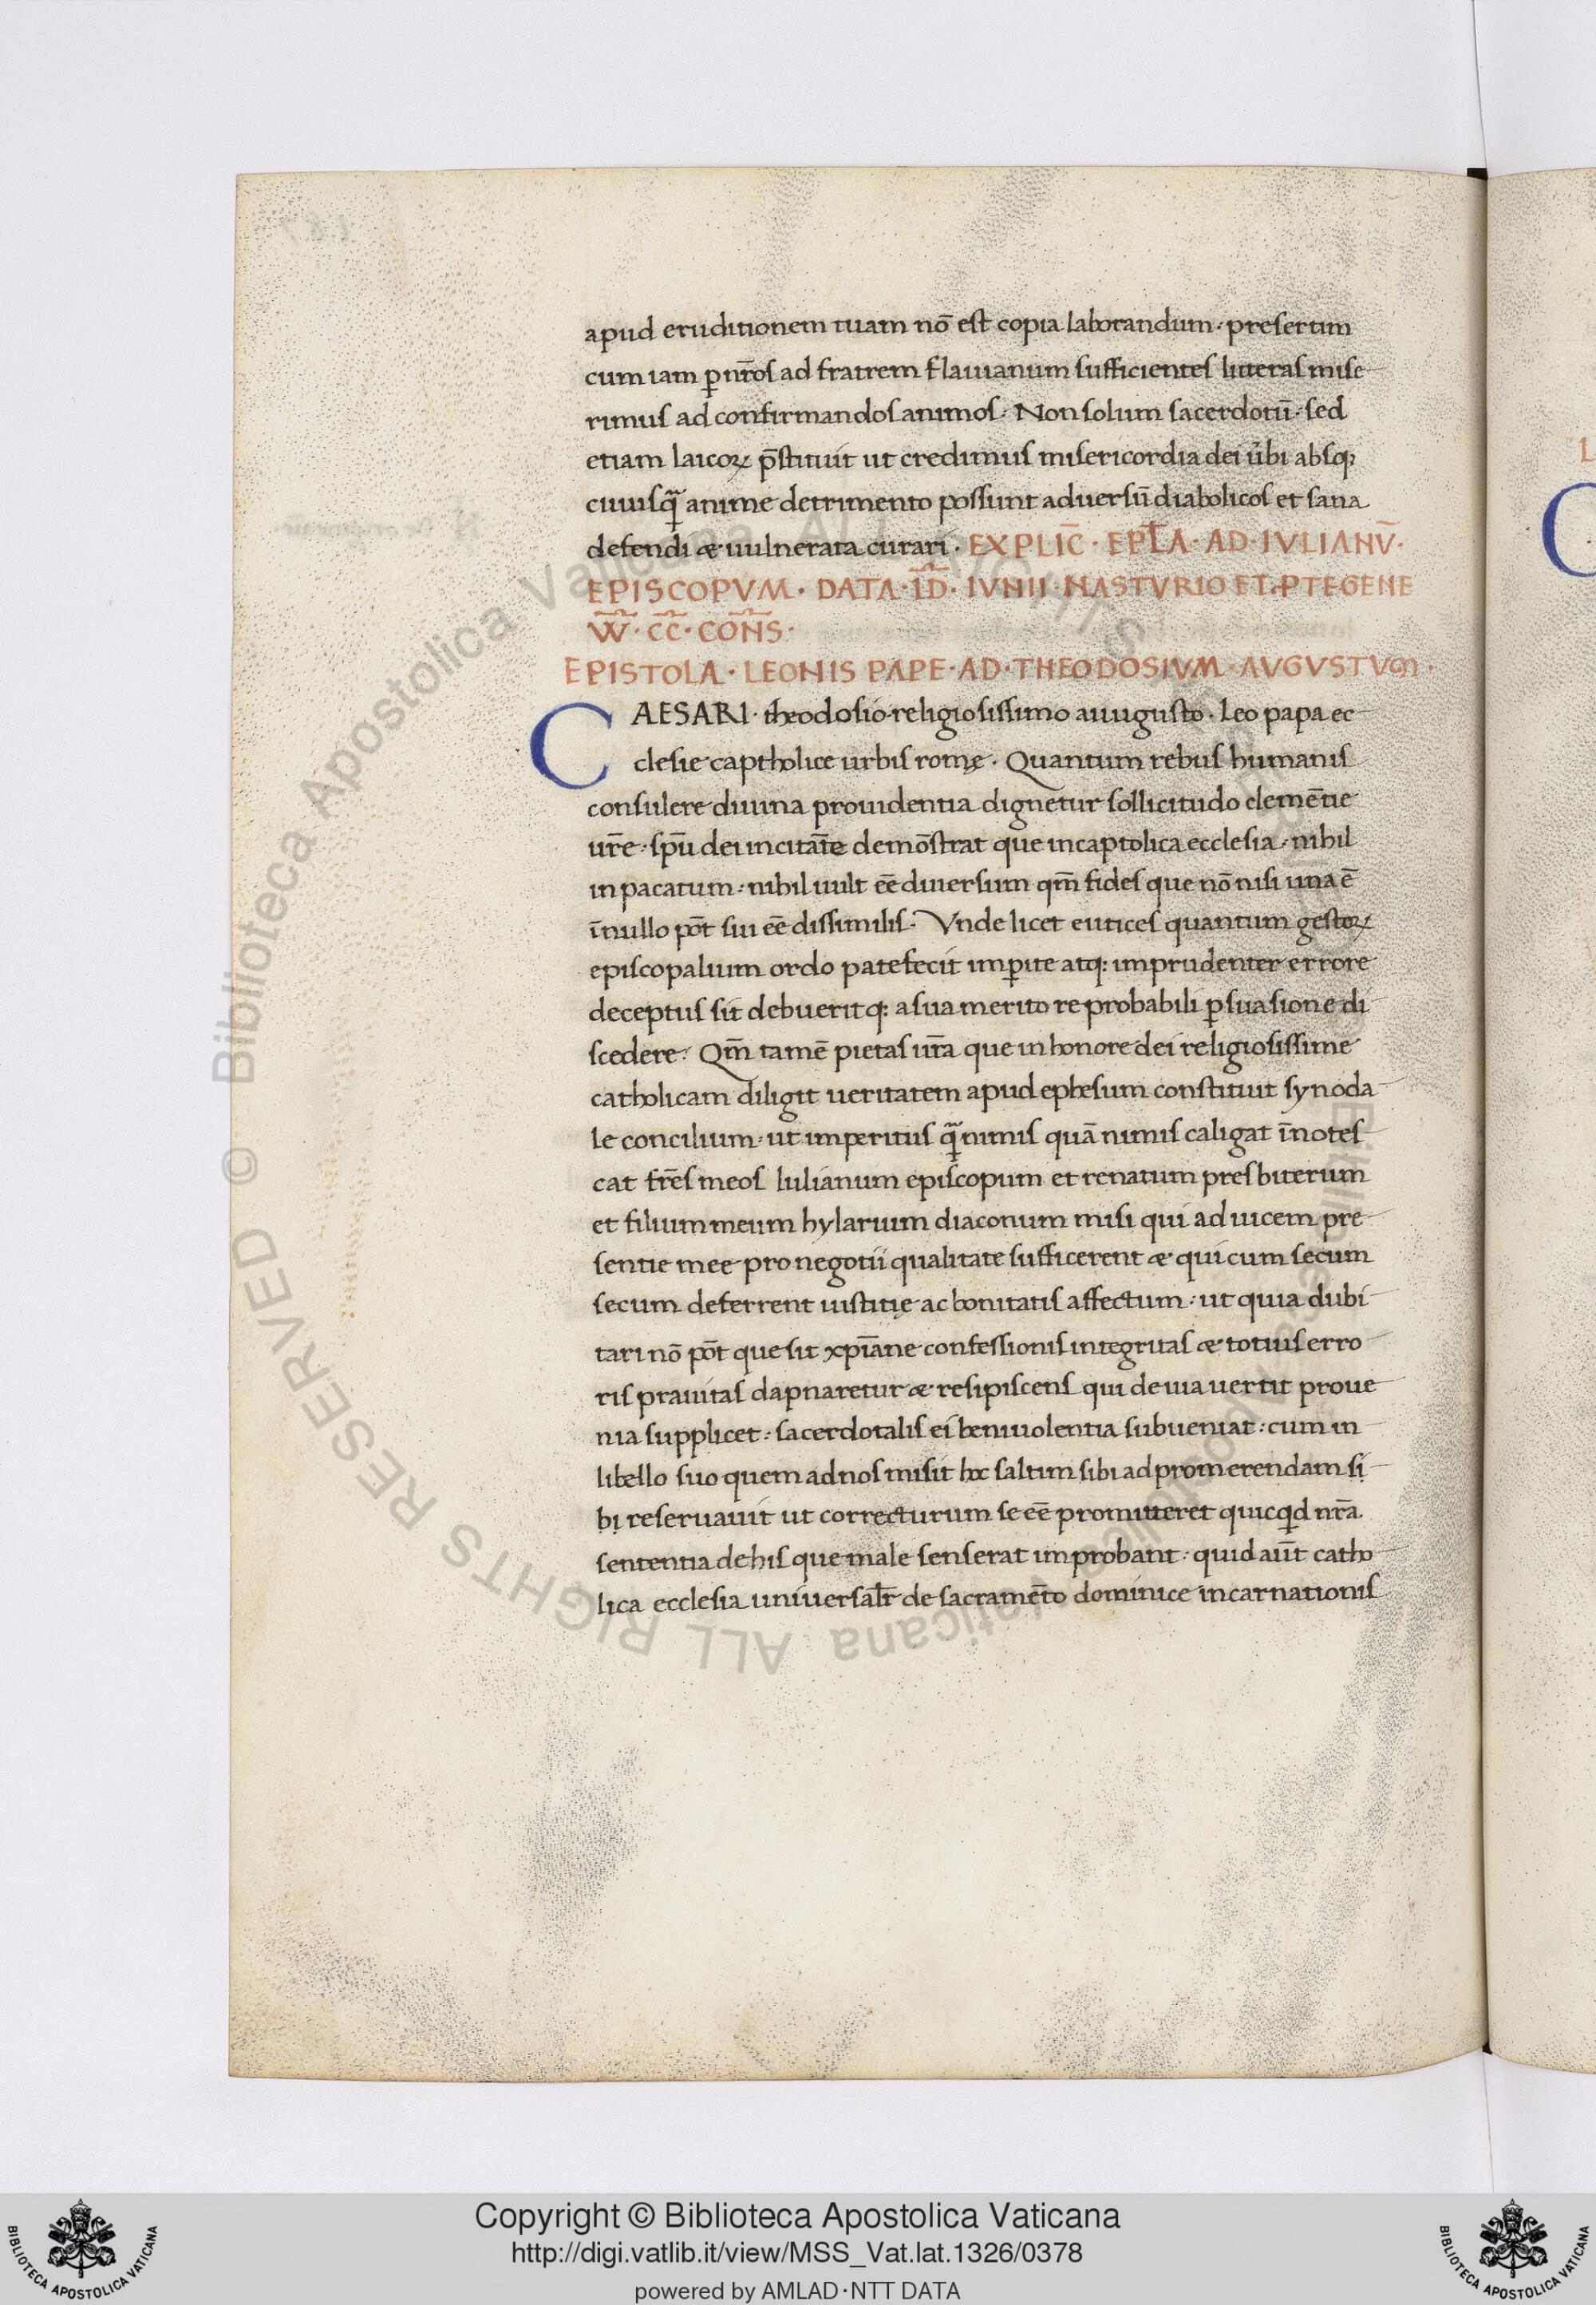 apud eruditionem tuam nō est copia laborandum · presertim
cum iam ꝑ nr̄os ad fratrem flauianum sufficientes litteras mise
rimus ad confirmandos animos · Non solum sacerdotū · sed
etiam laicoꝝ p̄stituit ut credimus misericordia dei ubi absqꝫ
cuiusq̄ anime detrimento possunt aduersū diabolicos et sana
defendi & uulnerata curari · EXPLIC̄ · EPL̄A · AD · IVLIANV̄ ·
EPISCOPVM · DATA · ID̄ · IVNII · NASTVRIO ET · PTEGENE
VV̄ · CC̄ · COÑS ·
EPISTOLA · LEONIS PAPE · AD · THEODOSIVM · AVGVSTVM ·
CAESARI · theodosio religiosissimo auugusto · Leo papa ec
clesie captholice urbis romę · Quantum rebus humanis
consulere diuina prouidentia dignetur sollicitudo clemētie
ur̄e · sp̄u dei incitāte demōstrat que in captolica ecclesia · nihil
in pacatum · nihil uult eē diuersum qm̄ fides que nō nisi una ē
in̄ nullo pōt sui eē dissimilis · Vnde licet eutices quantum gestoꝝ
episcopalium ordo patefecit imꝑite atq: imprudenter errore
deceptus sit debuerit q: a sua merito reprobabili ꝑsuasione di
scedere · Qm̄ tamē pietas ur̄a que in honore dei religiosissime
catholicam diligit ueritatem apud ephesum constituit synoda
le concilium · ut imperitus q̄ nimis quā nimis caligat īnotes
cat fr̄es meos Iulianum episcopum et renatum presbiterum
et filium meum hylarium diaconum misi qui ad uicem pre
sentie mee pro negotii qualitate sufficerent & qui cum secum
secum deferrent iustitię ac bonitatis affectum · ut quia dubi
tari nō pōt que sit xp̄iane confessionis integritas & totius erro
ris prauitas dapnaretur & resipiscens qui deuia uertit pro ue
nia supplicet · sacerdotalis ei beniuolentia subueniat : cum in
libello suo quem ad nos misit hoc saltim sibi ad promerendam si
bi reseruauit ut correcturum se eē promitteret quicqd nr̄a
sententia de his que male senserat improbant · quid aūt catho
lica ecclesia uniuersalr̄ de sacramēto dominice incarnationis
Copyright © Biblioteca Apostolica Vaticana
http://digi.vatlib.it/view/MSS_Vat.lat.1326/0378
powered by AMLAD·NTT DATA
© Biblioteca Apostolica Vaticana ALL RIGHTS RESERVED
BIBLIOTECA APOSTOLICA VATICANA
BIBLIOTECA APOSTOLICA VATICANA